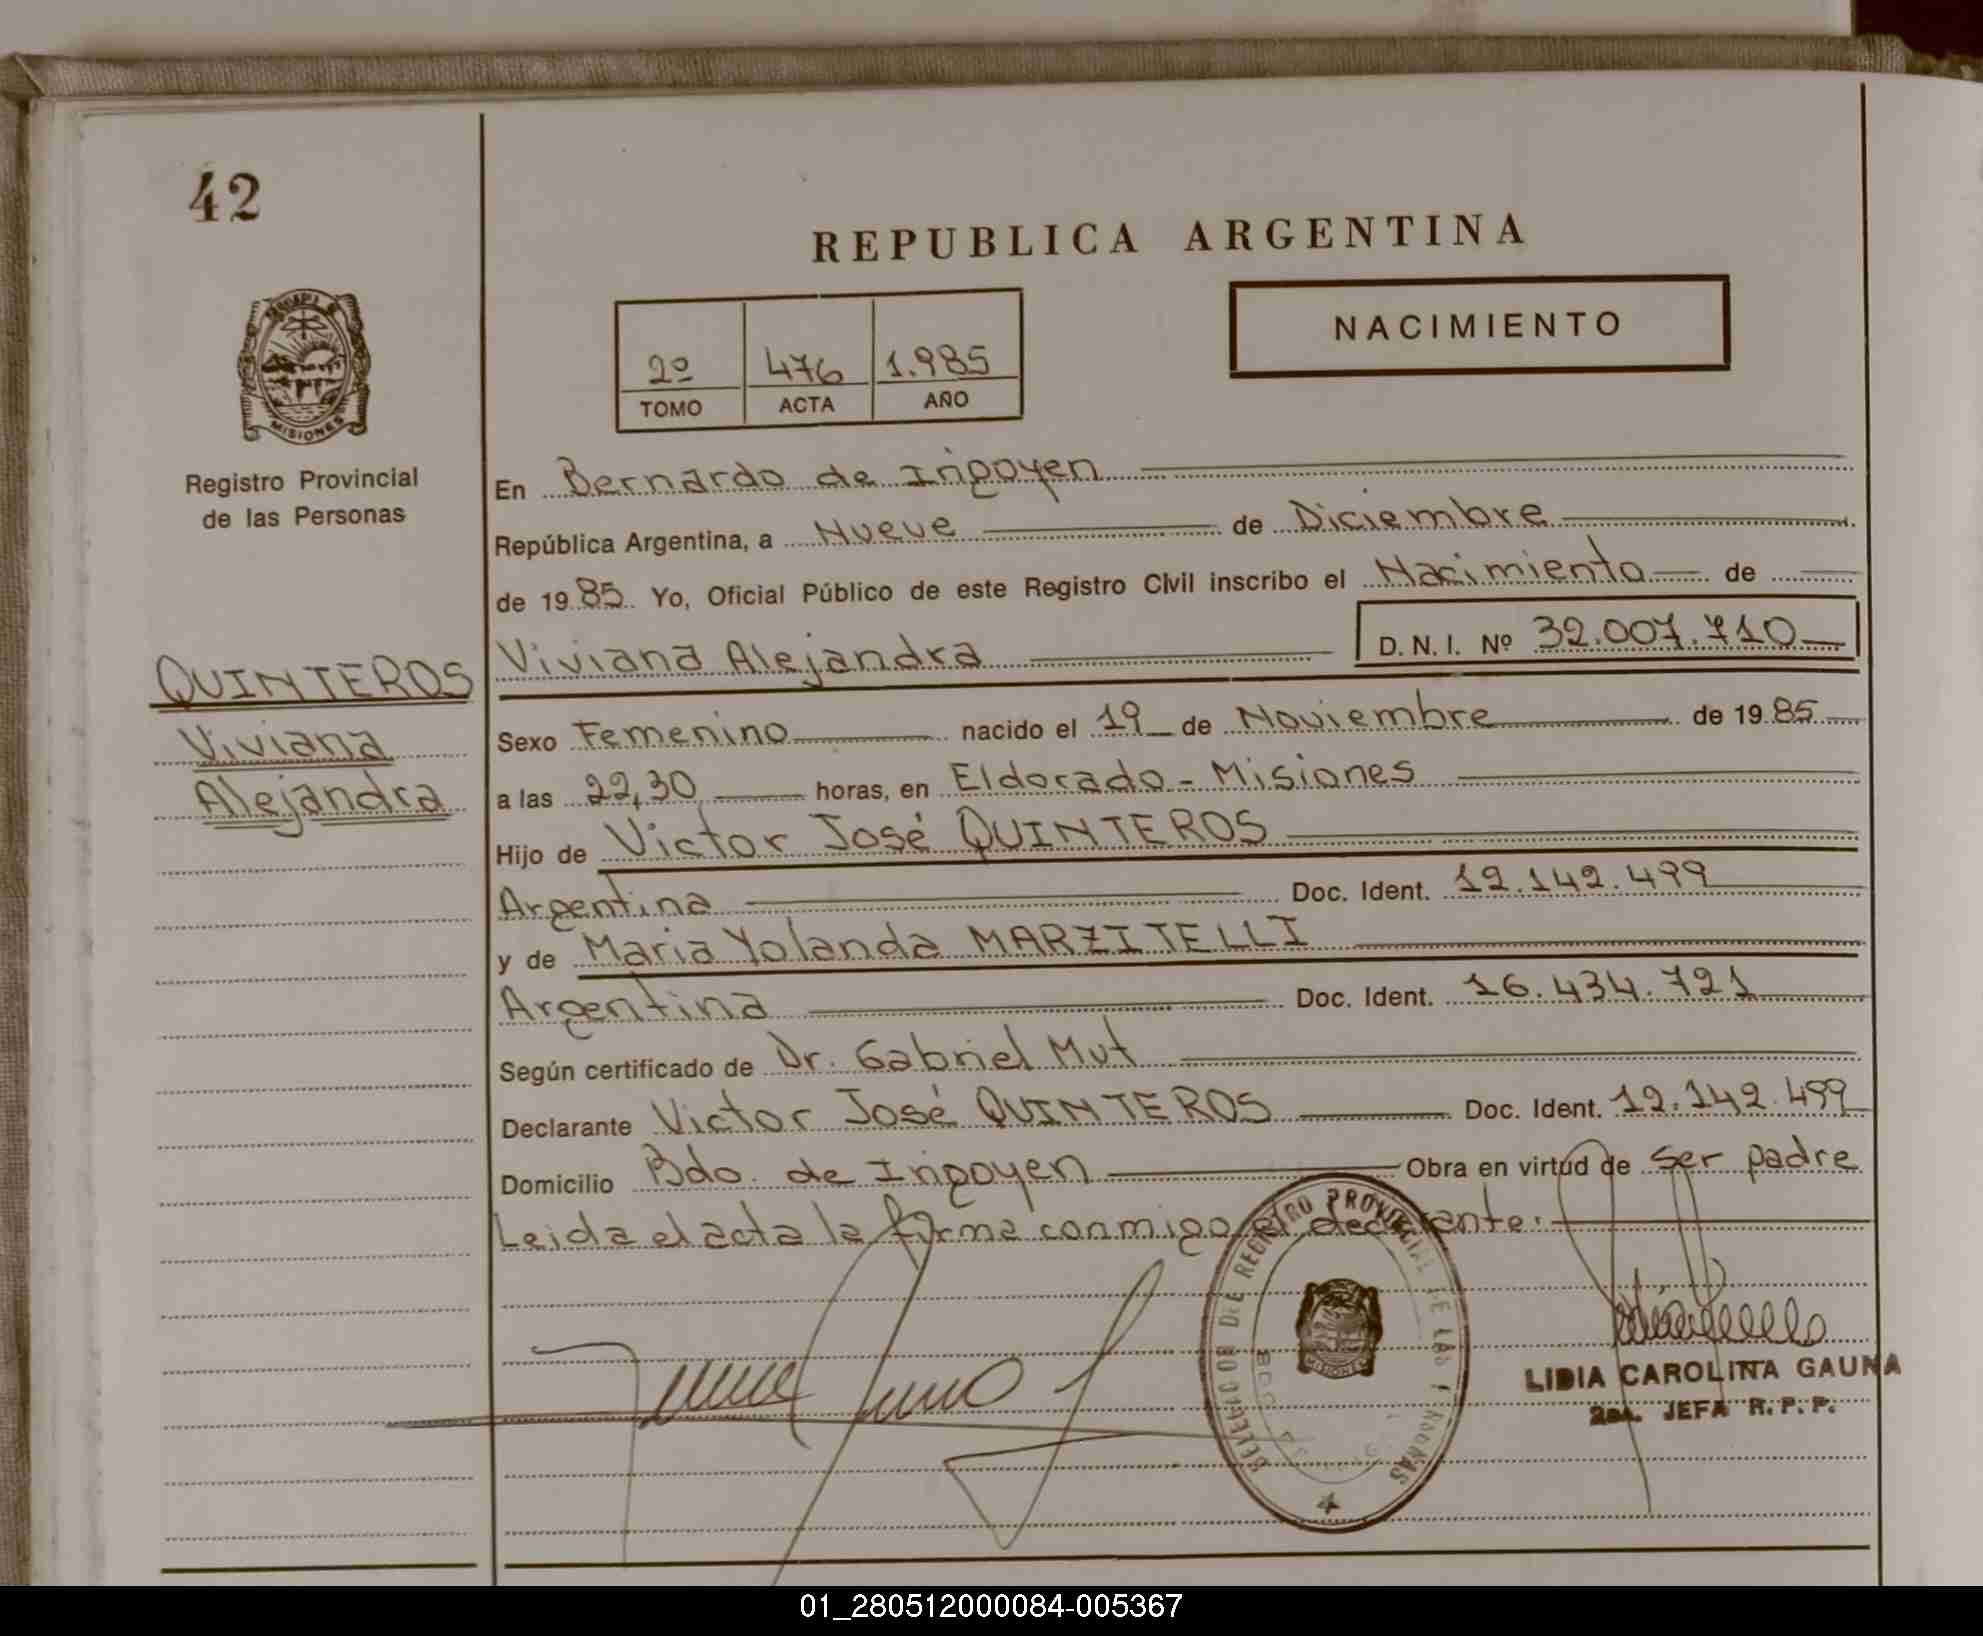 42
REPUBLICA ARGENTINA
NACIMIENTO
2º 476 1.985
TOMO ACTA AÑO
MISIONES
Registro Provincial
de las Personas
En Bernardo de Irigoyen
República Argentina, a Nueve de Diciembre
de 19 85 Yo, Oficial Público de este Registro Civil inscribo el Nacimiento de
QUINTEROS
Viviana
Alejandra
Viviana Alejandra D. N. I. Nº 32.007.710
Sexo Femenino nacido el 19 de Noviembre de 19 85
a las 22,30 horas, en Eldorado - Misiones
Hijo de Victor José QUINTEROS
Argentina Doc. Ident. 12.142.499
y de Maria Yolanda MARZITELLI
Argentina Doc. Ident. 16.434.721
Según certificado de Dr. Gabriel Mut
Declarante Victor José QUINTEROS Doc. Ident. 12.142.499
Domicilio Bdo. de Irigoyen Obra en virtud de ser padre
Leida el acta la firma conmigo el declarante.
REGISTRO PROVINCIAL DE LAS
MISIONES
LIDIA CAROLINA GAUNA
2da. JEFA R. P. P.
01_280512000084-005367